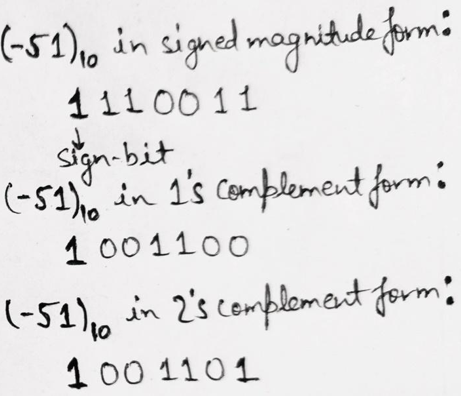 (-51)₁₀ in signed magnitude form:
1 1 1 0 0 1 1
↓
sign-bit
(-51)₁₀ in 1's complement form:
1 0 0 1 1 0 0
(-51)₁₀ in 2's complement form:
1 0 0 1 1 0 1